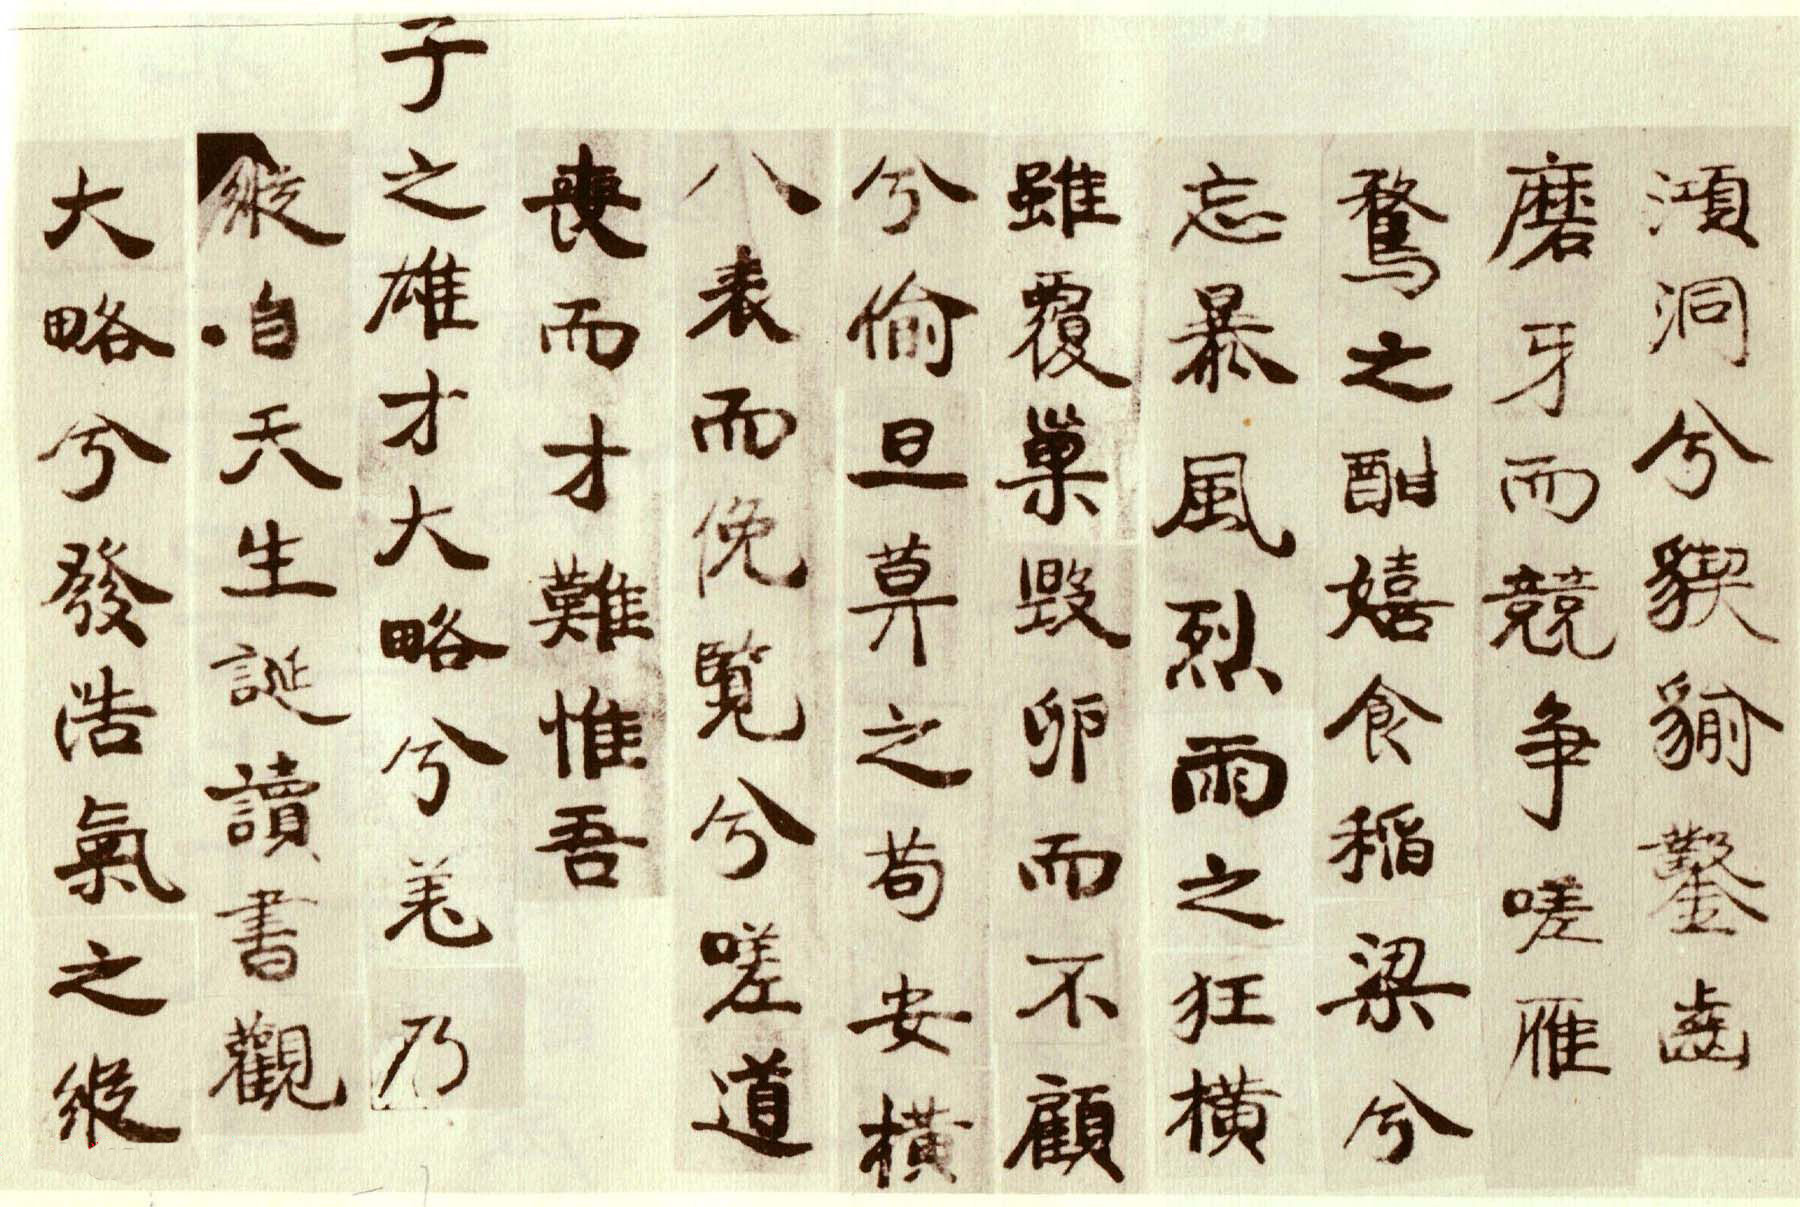 澒洞兮猰貐鑿齒
磨牙而競爭嗟雁
鶩之酣嬉食稻粱兮
忘暴風烈雨之狂橫
雖覆巢毀卵而不顧
兮偷旦莫之苟安橫
八表而俛覽兮嗟道
喪而才難惟吾
子之雄才大略兮羌乃
縱自天生誕讀書觀
大略兮發浩氣之縱